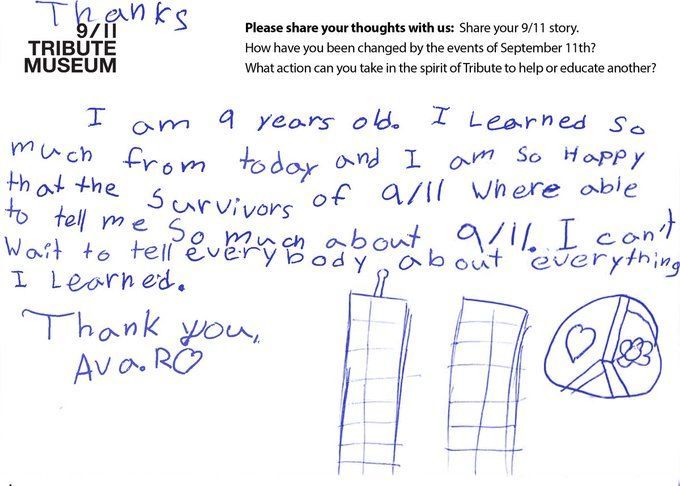 Thanks
9/11
TRIBUTE
MUSEUM
Please share your thoughts with us: Share your 9/11 story.
How have you been changed by the events of September 11th?
What action can you take in the spirit of Tribute to help or educate another?
I am 9 years old. I Learned so
much from today and I am so Happy
that the survivors of 9/11 where able
to tell me So much about 9/11. I can't
Wait to tell everybody about everything
I Learned.
Thank you,
Ava.R